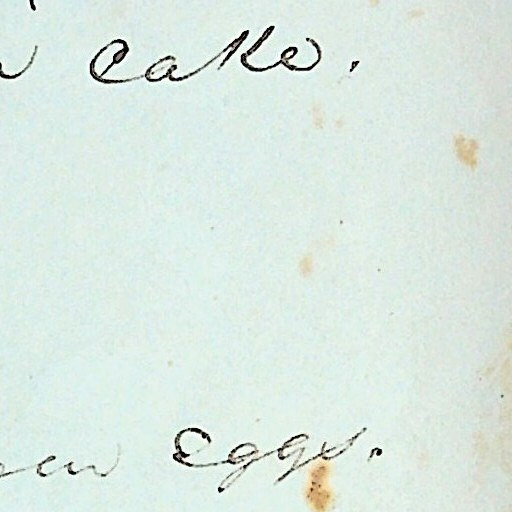 cake.
eggs.